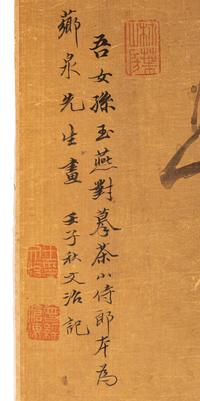 吾女孫玉燕對摹茶山侍郎本為
薌泉先生畫 壬子秋文治記